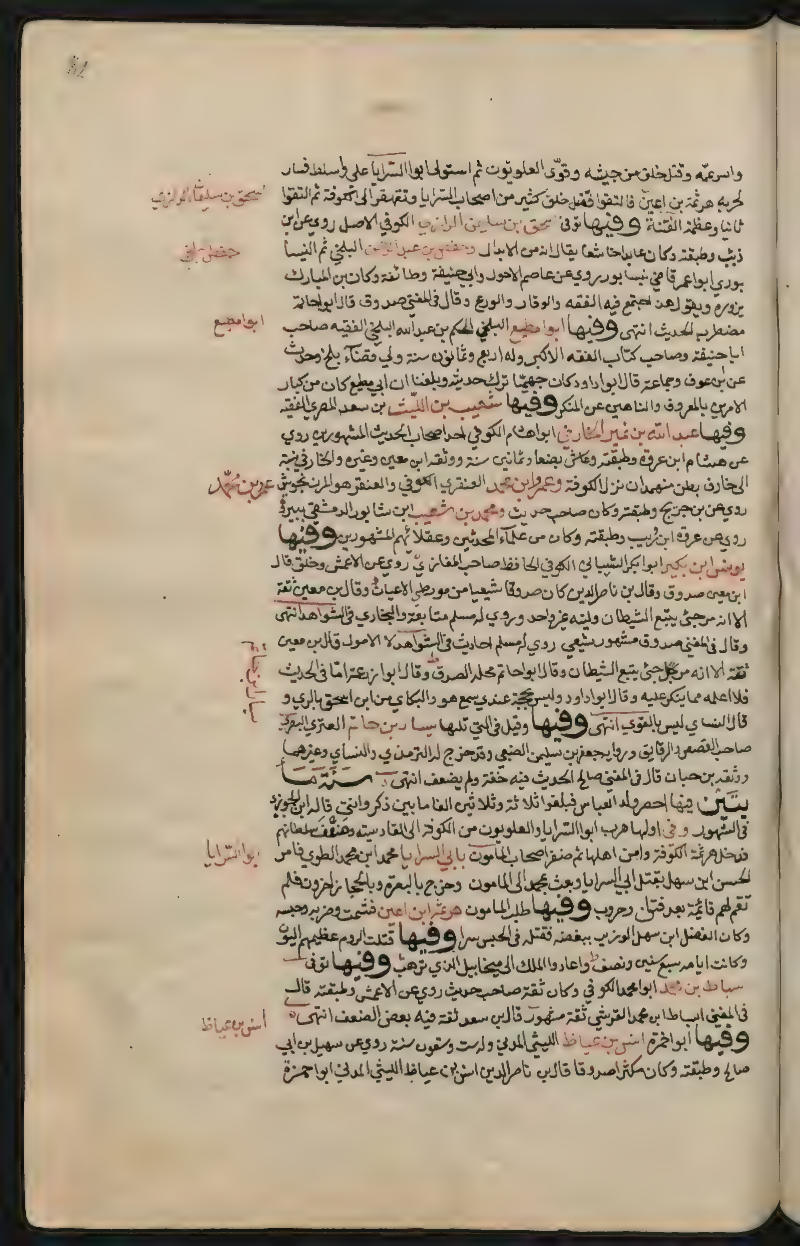 واسر عمه وقتل خلق من جيشه وقوى العلويون ثم استولى ابوا السرايا على واسط فسار
لحربه هرثمة بن اعين فالتقوا فقتل خلق كثير من اصحاب السرايا وتقهقر الى الكوفة ثم التقوا
ثانيا وعظمة الفتنة وفيها توفى اسحق بن سليمن الرازي الكوفي الاصل روى عن ابن
ذيب وطبقته وكان عابدا خاشعا يقال انه من الابدال وحفص بن عبد الرحمن البلخي ثم النيسا
بوري ابوا عمر قاضي نيسابور روى عن عاصم الاحول وابي حنيفة وطائفة وكان بن المبارك
يزوره ويقول هذا اجتمع فيه الفقه والوقار والورع وقال في المغني صدوق قال ابو حاتم
مضطرب الحديث انتهى وفيها ابو مطيع البلخي الحكم بن عبد الله البلخي الفقيه صاحب
ابا حنيفة وصاحب كتاب الفقه الاكبر وله اربع وثمانون سنة ولي قضاء بلخ وحدث
عن بن عوف وجماعة قال ابوا داود كان جهميا تركت حديثه وبلغنا ان ابي مطيع كان من كبار
الامرين بالمعروف والناهين عن المنكر وفيها شعيب بن الليث بن سعد المصري الفقيه
وفيها عبد الله بن نمير الخارفي ابوا هشام الكوفي احد اصحاب الحديث المشهورين روى
عن هشام ابن عروة وطبقته وعاش بضعا وثمانين سنة ووثقه ابن معين وغيره والخارفي نسبة
الى خارف بطن من همدان نزل الكوفة وعمرو ابن محمد العنقزي الكوفي والعنقز هو المرزنجوش
روى عن بن جريج وطبقته وكان صاحب حديث ومحمد بن شعيب ابن شابور الدمشقي ببيروت
روى عن عروة ابن رويب وطبقته وكان من علماء المحدثين وعقلائهم المشهورين وفيها
يونس ابن بكير ابوا بكر الشيباني الكوفي الحافظ صاحب المغازي روى عن الاعمش وخلق قال
ابن معين صدوق وقال بن ناصر الدين كان صدوقا شيعيا من مورطي الاعيان وقال بن معين ثقة
الا انه مرجئ يتبع الشيطان ولينه غير واحد وروى له مسلم متابعة والبخاري في الشواهد انتهى
وقال في المغني صدوق مشهور شيعي روى له مسلم احاديث في الشواهد لا الاصول قال بن معين
ثقة الا انه مرجئ يتبع الشيطان وقال ابوا حاتم محله الصدق وقال ابوا زرعة اما في الحديث
فلا اعلمه مما ينكر عليه وقال ابوا داود وليس بحجة عندي سمع هو والبكاي من ابن اسحق بالري و
قال النساي ليس بالقوي انتهى وفيها وقيل في التي تليها سيار بن حاتم العنزي البصري
صاحب القصص والرقايق ورواية جعفر بن سليمن الضبعي وقد خرج له الترمذي والنساي وغيرهما
ووثقه بن حبان قال في المغني صالح الحديث فيه خفة ولم يضعف انتهى سنة ما
يتين فيها احصى ولد العباس فبلغوا ثلاثة وثلاثين الفا ما بين ذكر وانثى قاله ابن الجوزي
في الشذور وفي اولها هرب ابوا السرايا والعلويون من الكوفة الى القادسية وضعف سلطانهم
فدخل هرثمة الكوفة وامن اهلها ثم ظفر اصحاب المأمون بابي السرايا ومحمد ابن محمد العلوي فامر
الحسن ابن سهل بقتل ابي السرايا وبعث بمحمد الى المامون وخرج بالبصرة وبالحجاز اخرون فلم
تقم لهم قائمة بعد فتن وحروب وفيها طلب المامون هرثمة ابن اعين فشتمه وضربه وحبسه
وكان الفضل ابن سهل الوزير يبغضه فقتله في الحبس سرا وفيها قتلت الروم عظيمهم اليون
وكانت ايامه سبع سنين ونصف واعادوا الملك الى ميخاييل الذي ترهب وفيها توفى
اسباط بن محمد ابوا محمد الكوفي وكان ثقة صاحب حديث روى عن الاعمش وطبقته قال
في المغني اسباط ابن محمد القرشي ثقة مشهور قال بن سعد ثقة فيه بعض الضعف انتهى
وفيها ابوا ضمرة انس بن عياض الليثي المدني وله ست وتسعون سنة روى عن سهيل بن ابي
صالح وطبقته وكان مكثرا صدوقا قال بن ناصر الدين انس بن عياض الليثي المدني ابوا حمزة
اسحق بن سليمان الرازي
حفص بلخي
ابوا مطيع
عمر بن محمد
سيار ابن حاتم
ابوا السرايا
انس بن عياظ